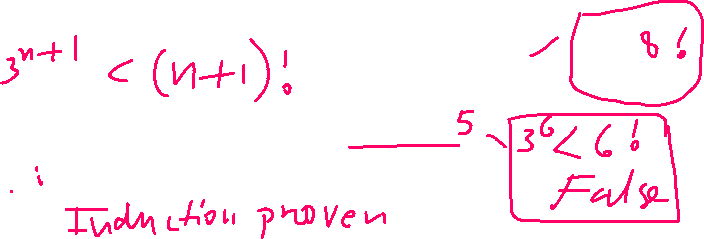 3^{n+1} < (n+1)!
8!
5
3^6 < 6!
False
∴ Induction proven